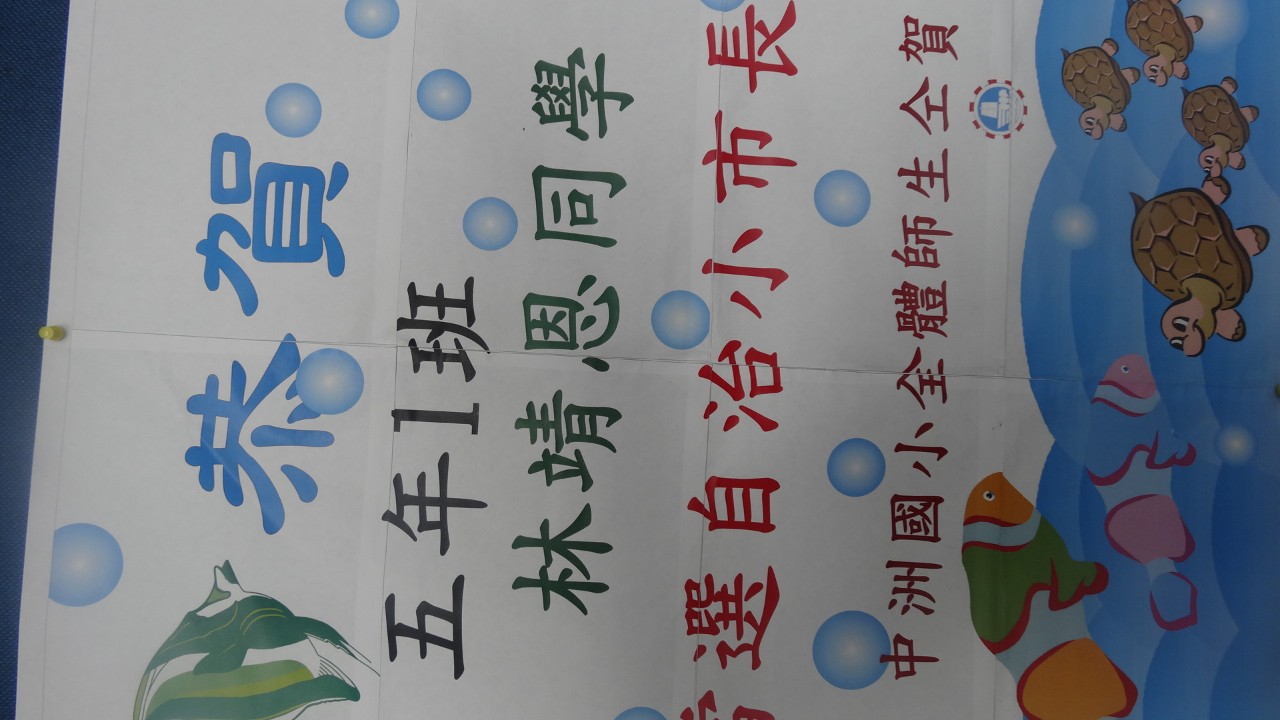 恭賀
五年1班
林靖恩同學
選自治小市長
中洲國小全體師生仝賀